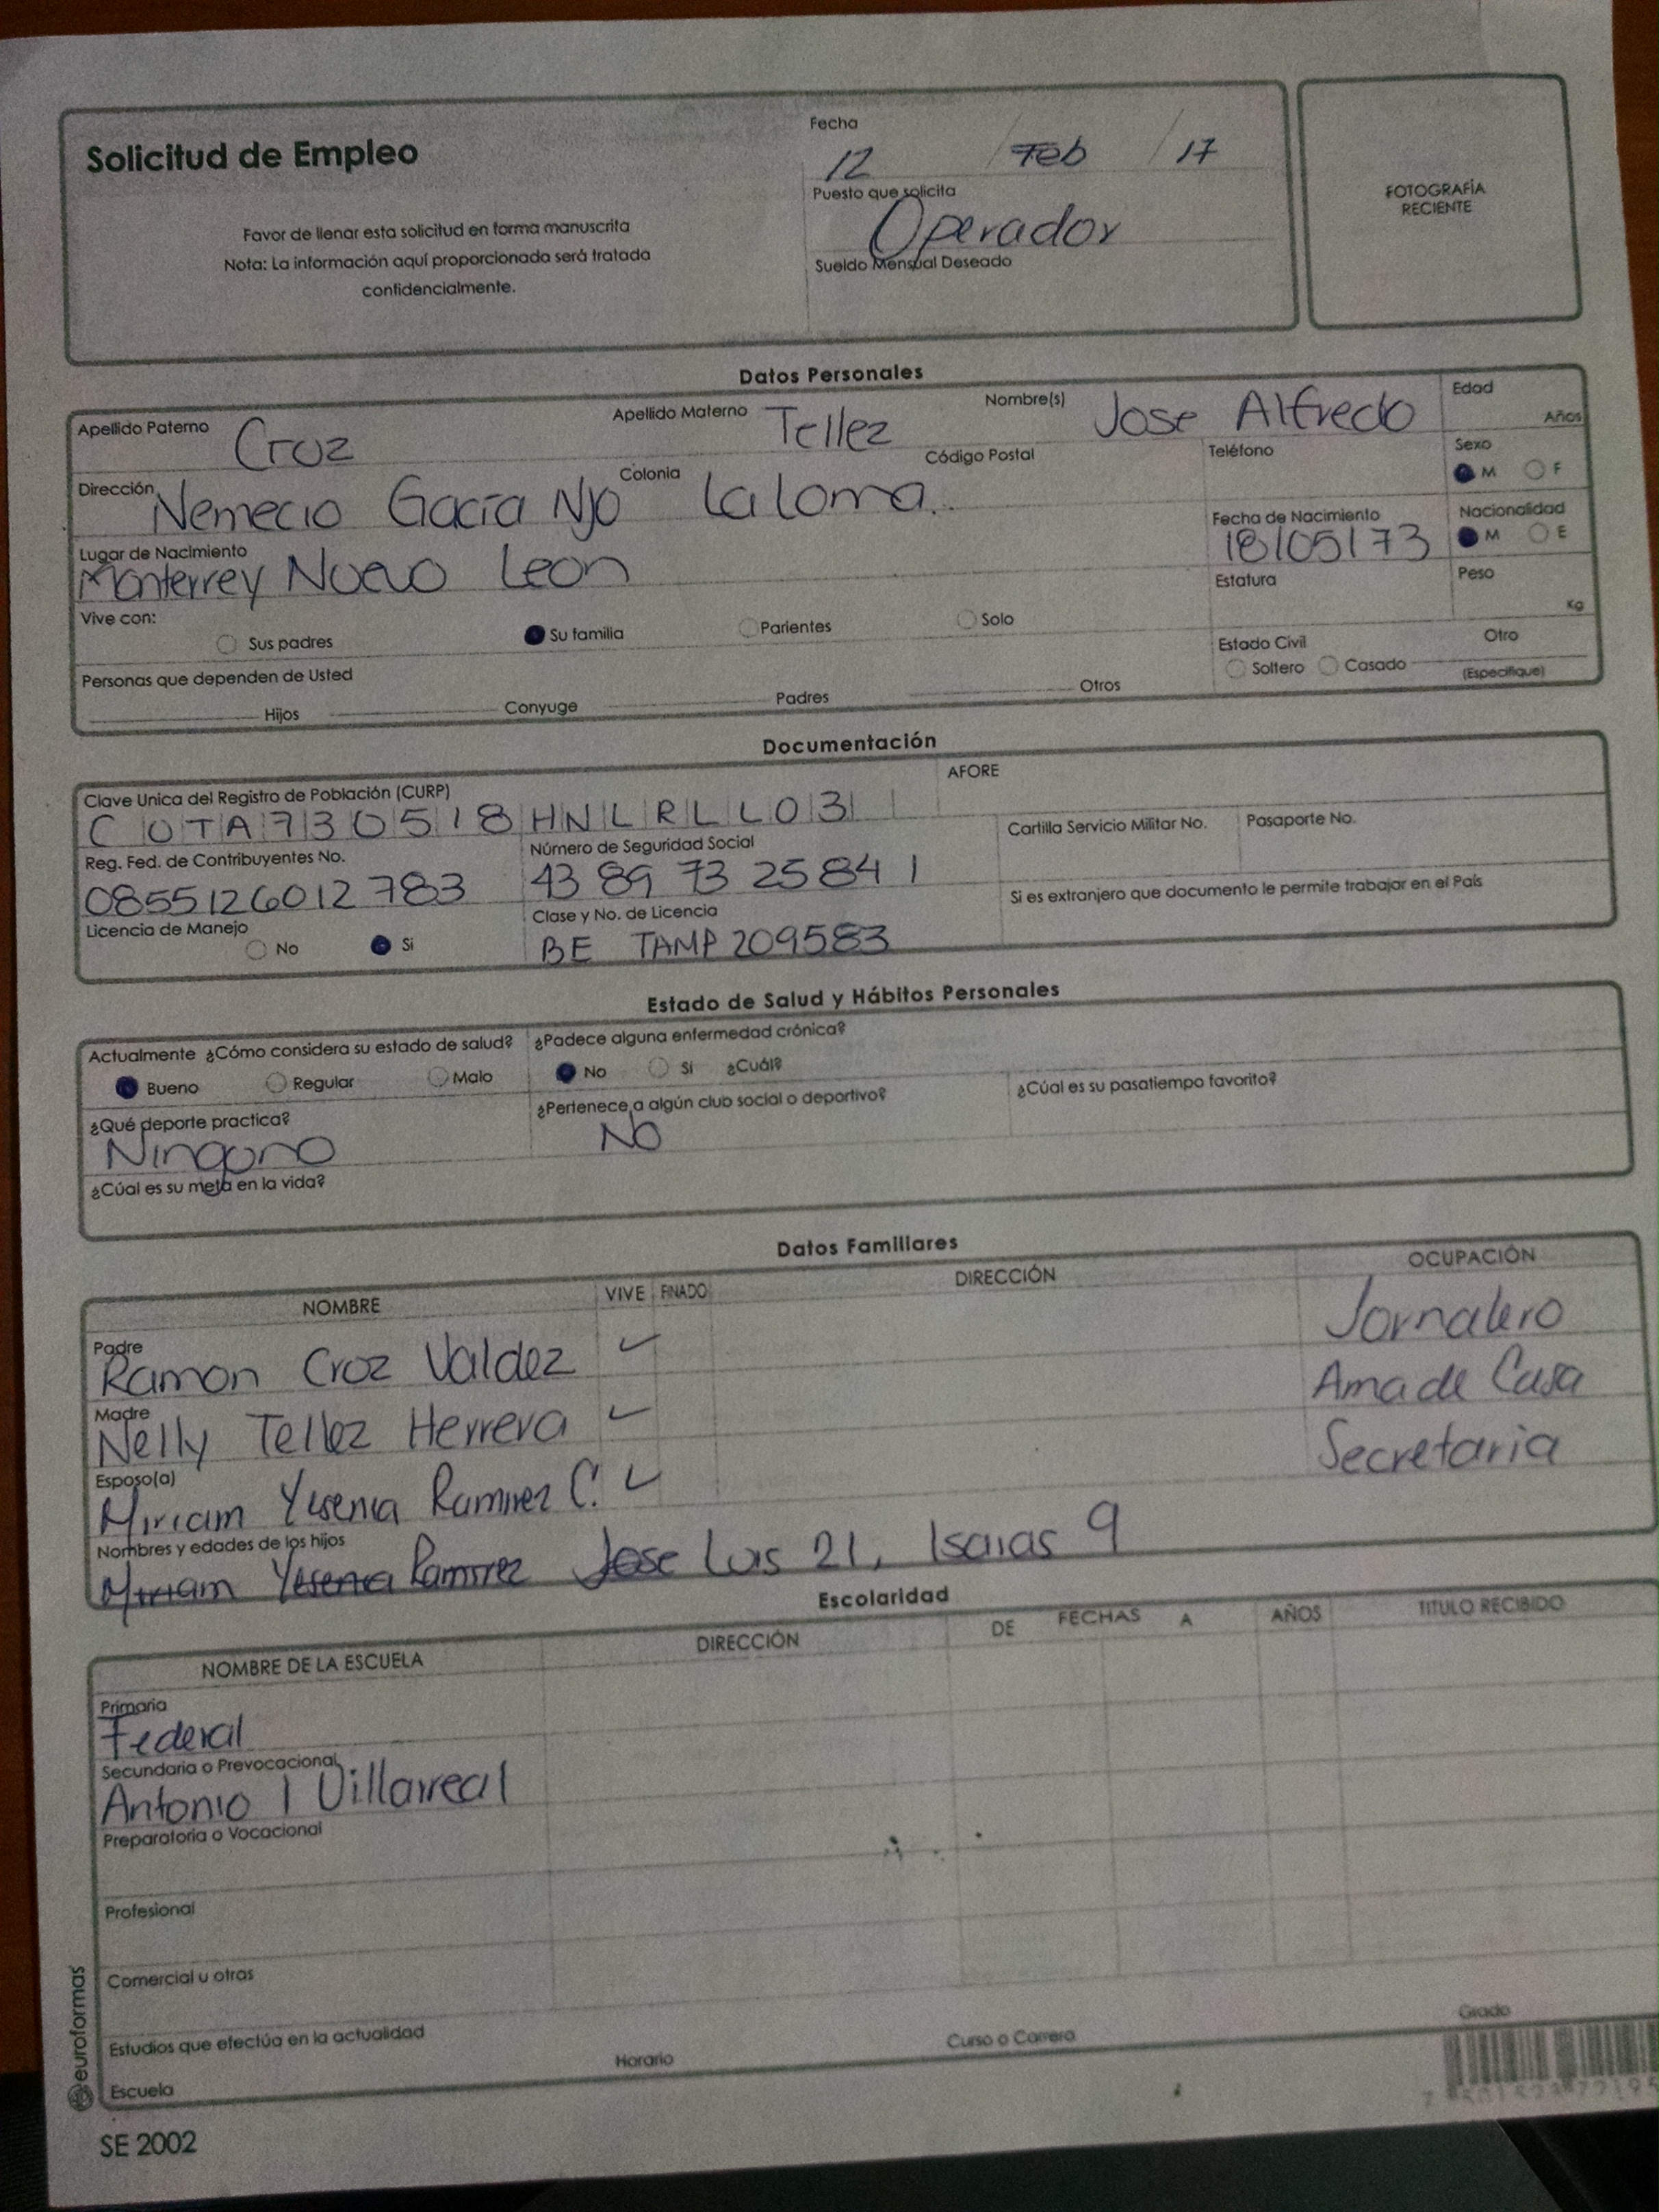 Fecha
Solicitud de Empleo
12 / Feb / 17
Puesto que solicita
FOTOGRAFÍA
RECIENTE
Favor de llenar esta solicitud en forma manuscrita
Operador
Nota: La información aquí proporcionada será tratada
confidencialmente.
Sueldo Mensual Deseado
Datos Personales
Apellido Paterno Cruz Apellido Materno Tellez Nombre(s) Jose Alfredo Edad Años
Dirección Nemecio Gacia Njo Colonia La Loma. Código Postal Teléfono Sexo M F
Lugar de Nacimiento Fecha de Nacimiento Nacionalidad
Monterrey Nuevo Leon 18/05/73 M E
Estatura Peso Kg
Vive con: Sus padres Su familia Parientes Solo
Estado Civil Soltero Casado Otro (Especifique)
Personas que dependen de Usted
Hijos Conyuge Padres Otros
Documentación
Clave Unica del Registro de Población (CURP) AFORE
CUTA730518HNLRLL03
Reg. Fed. de Contribuyentes No. Número de Seguridad Social Cartilla Servicio Militar No. Pasaporte No.
0855126012783 43 89 73 2584 1
Si es extranjero que documento le permite trabajar en el País
Licencia de Manejo No Si Clase y No. de Licencia
BE TAMP 209583
Estado de Salud y Hábitos Personales
Actualmente ¿Cómo considera su estado de salud? ¿Padece alguna enfermedad crónica?
Bueno Regular Malo No Sí ¿Cuál?
¿Qué deporte practica? ¿Pertenece a algún club social o deportivo? ¿Cúal es su pasatiempo favorito?
Ninguno No
¿Cúal es su meta en la vida?
Datos Familiares
NOMBRE VIVE FINADO DIRECCIÓN OCUPACIÓN
Padre
Ramon Cruz Valdez ✓ Jornalero
Madre
Nelly Tellez Herrera ✓ Ama de Casa
Esposo(a)
Miriam Yesenia Ramirez C. ✓ Secretaria
Nombres y edades de los hijos
Miriam Yesenia Ramirez Jose Luis 21, Isaias 9
Escolaridad
NOMBRE DE LA ESCUELA DIRECCIÓN DE FECHAS A AÑOS TITULO RECIBIDO
Primaria
Federal
Secundaria o Prevocacional
Antonio I Villarreal
Preparatoria o Vocacional
Profesional
Comercial u otras
Estudios que efectúa en la actualidad
Escuela Horario Curso o Carrera Grado
euroformas
SE 2002